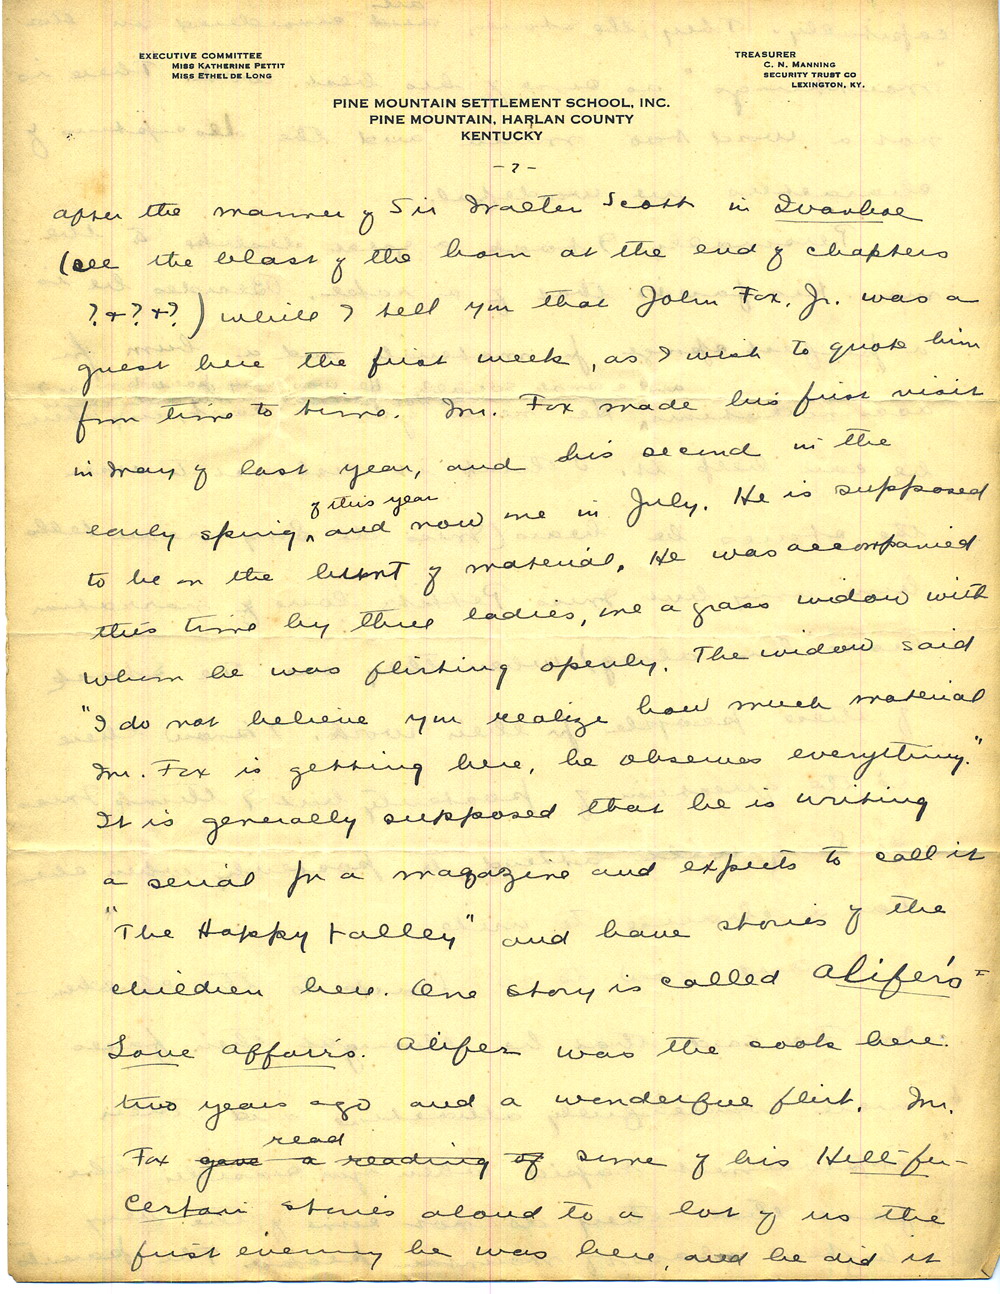 EXECUTIVE COMMITTEE
MISS KATHERINE PETTIT
MISS ETHEL DE LONG
TREASURER
C. N. MANNING
SECURITY TRUST CO
LEXINGTON, KY.
PINE MOUNTAIN SETTLEMENT SCHOOL, INC.
PINE MOUNTAIN, HARLAN COUNTY
KENTUCKY
-7-
after the manner of Sir Walter Scott in Ivanhoe
(see the blast of the horn at the end of chapters
?+?+?) while I tell you that John Fox, Jr. was a
guest here the first week, as I wish to quote him
from time to time. Mr. Fox made his first visit
in May of last year, and his second in the
early spring of this year, and now one in July. He is supposed
to be on the hunt of material. He was accompanied
this time by three ladies, one a grass widow with
whom he was flirting openly. The widow said
"I do not believe you realize how much material
Mr. Fox is getting here, he observes everything."
It is generally supposed that he is writing
a serial for a magazine and expects to call it
"The Happy Valley" and have stories of the
children here. One story is called Alifer's
Love Affairs. Alifer was the cook here
two years ago and a wonderful flirt. Mr.
Fox gave a reading of read some of his Hell-fer-
Certain stories aloud to a lot of us the
first evening he was here, and he did it